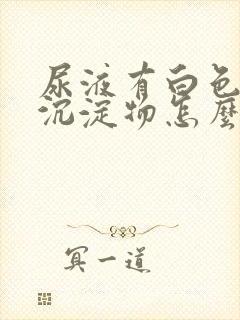 尿液有白色
沉淀物怎麼
冥一道